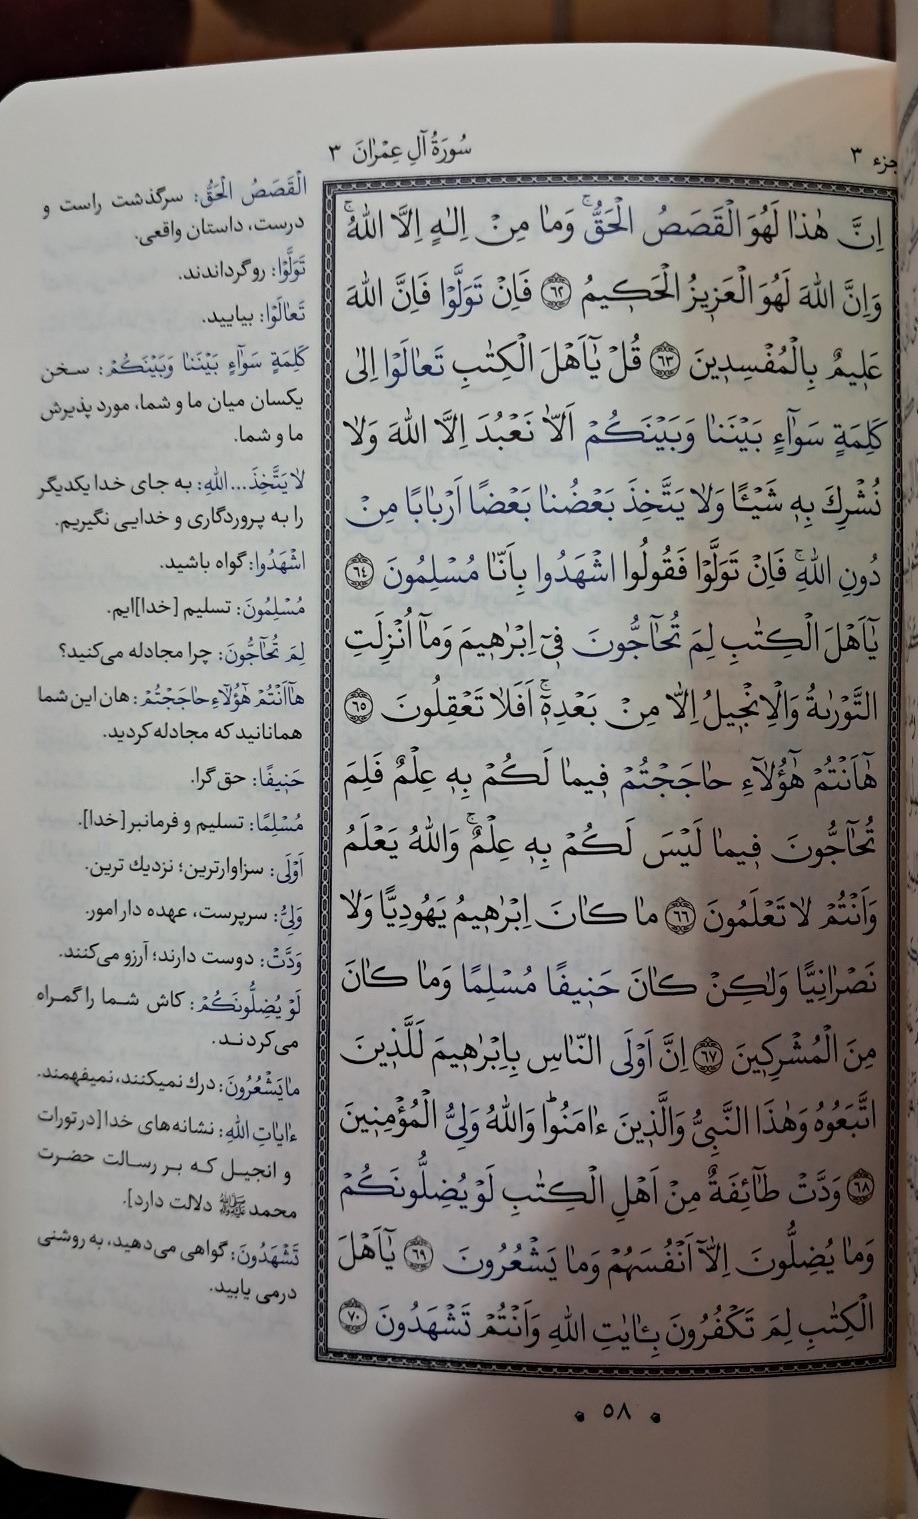 جزء ٣
سُورَةُ آلِ عِمْرٰانَ ٣
اِنَّ هٰذٰا لَهُوَ الْقَصَصُ الْحَقُّۚ وَمٰا مِنْ اِلٰهٍ اِلَّا اللّٰهُۚ
وَاِنَّ اللّٰهَ لَهُوَ الْعَزِيزُ الْحَكِيمُ ﴿٦٢﴾ فَاِنْ تَوَلَّوْا فَاِنَّ اللّٰهَ
عَلِيمٌ بِالْمُفْسِدِينَ ﴿٦٣﴾ قُلْ يٰٓاَهْلَ الْكِتٰبِ تَعٰالَوْا اِلىٰ
كَلِمَةٍ سَوٰٓاءٍ بَيْنَنٰا وَبَيْنَكُمْ اَلّٰا نَعْبُدَ اِلَّا اللّٰهَ وَلٰا
نُشْرِكَ بِهٖ شَيْئًا وَلٰا يَتَّخِذَ بَعْضُنٰا بَعْضًا اَرْبٰابًا مِنْ
دُونِ اللّٰهِۚ فَاِنْ تَوَلَّوْا فَقُولُوا اشْهَدُوا بِاَنّٰا مُسْلِمُونَ ﴿٦٤﴾
يٰٓاَهْلَ الْكِتٰبِ لِمَ تُحٰٓاجُّونَ فٖٓي اِبْرٰهٖيمَ وَمٰٓا اُنْزِلَتِ
التَّوْرٰىةُ وَالْاِنْجٖيلُ اِلّٰا مِنْ بَعْدِهٖٓۚ اَفَلٰا تَعْقِلُونَ ﴿٦٥﴾
هٰٓاَنْتُمْ هٰٓؤُلٰٓاءِ حٰاجَجْتُمْ فٖيمٰا لَكُمْ بِهٖ عِلْمٌ فَلِمَ
تُحٰٓاجُّونَ فٖيمٰا لَيْسَ لَكُمْ بِهٖ عِلْمٌۚ وَاللّٰهُ يَعْلَمُ
وَاَنْتُمْ لٰا تَعْلَمُونَ ﴿٦٦﴾ مٰا كٰانَ اِبْرٰهٖيمُ يَهُودِيًّا وَلٰا
نَصْرٰانِيًّا وَلٰكِنْ كٰانَ حَنٖيفًا مُسْلِمًا وَمٰا كٰانَ
مِنَ الْمُشْرِكٖينَ ﴿٦٧﴾ اِنَّ اَوْلَى النّٰاسِ بِاِبْرٰهٖيمَ لَلَّذٖينَ
اتَّبَعُوهُ وَهٰذَا النَّبِيُّ وَالَّذٖينَ ءٰامَنُواؕ وَاللّٰهُ وَلِيُّ الْمُؤْمِنٖينَ
﴿٦٨﴾ وَدَّتْ طٰٓائِفَةٌ مِنْ اَهْلِ الْكِتٰبِ لَوْ يُضِلُّونَكُمْ
وَمٰا يُضِلُّونَ اِلّٰٓا اَنْفُسَهُمْ وَمٰا يَشْعُرُونَ ﴿٦٩﴾ يٰٓاَهْلَ
الْكِتٰبِ لِمَ تَكْفُرُونَ بِـٔايٰاتِ اللّٰهِ وَاَنْتُمْ تَشْهَدُونَ ﴿٧٠﴾
الْقَصَصُ الْحَقُّ: سرگذشت راست و
درست، داستان واقعی.
تَوَلَّوْا: روگرداندند.
تَعٰالَوْا: بیایید.
كَلِمَةٍ سَوٰٓاءٍ بَيْنَنٰا وَبَيْنَكُمْ: سخن
یکسان میان ما و شما، مورد پذیرش
ما و شما.
لٰا يَتَّخِذَ... اللّٰهِ: به جای خدا یکدیگر
را به پروردگاری و خدایی نگیریم.
اشْهَدُوا: گواه باشید.
مُسْلِمُونَ: تسلیم [خدا]ایم.
لِمَ تُحٰٓاجُّونَ: چرا مجادله می‌کنید؟
هٰٓااَنْتُمْ هٰٓؤُلٰٓاءِ حٰاجَجْتُمْ: هان این شما
همانانید که مجادله کردید.
حَنٖيفًا: حق گرا.
مُسْلِمًا: تسلیم و فرمانبر [خدا].
اَوْلَى: سزاوارترین؛ نزدیک ترین.
وَلِيُّ: سرپرست، عهده دار امور.
وَدَّتْ: دوست دارند؛ آرزو می‌کنند.
لَوْ يُضِلُّونَكُمْ: کاش شما را گمراه
می‌کردند.
مٰا يَشْعُرُونَ: درك نمیکنند، نمیفهمند.
ءٰايٰاتِ اللّٰهِ: نشانه‌های خدا [در تورات
و انجیل که بر رسالت حضرت
محمد ﷺ دلالت دارد].
تَشْهَدُونَ: گواهی می‌دهید، به روشنی
درمی یابید.
٥٨